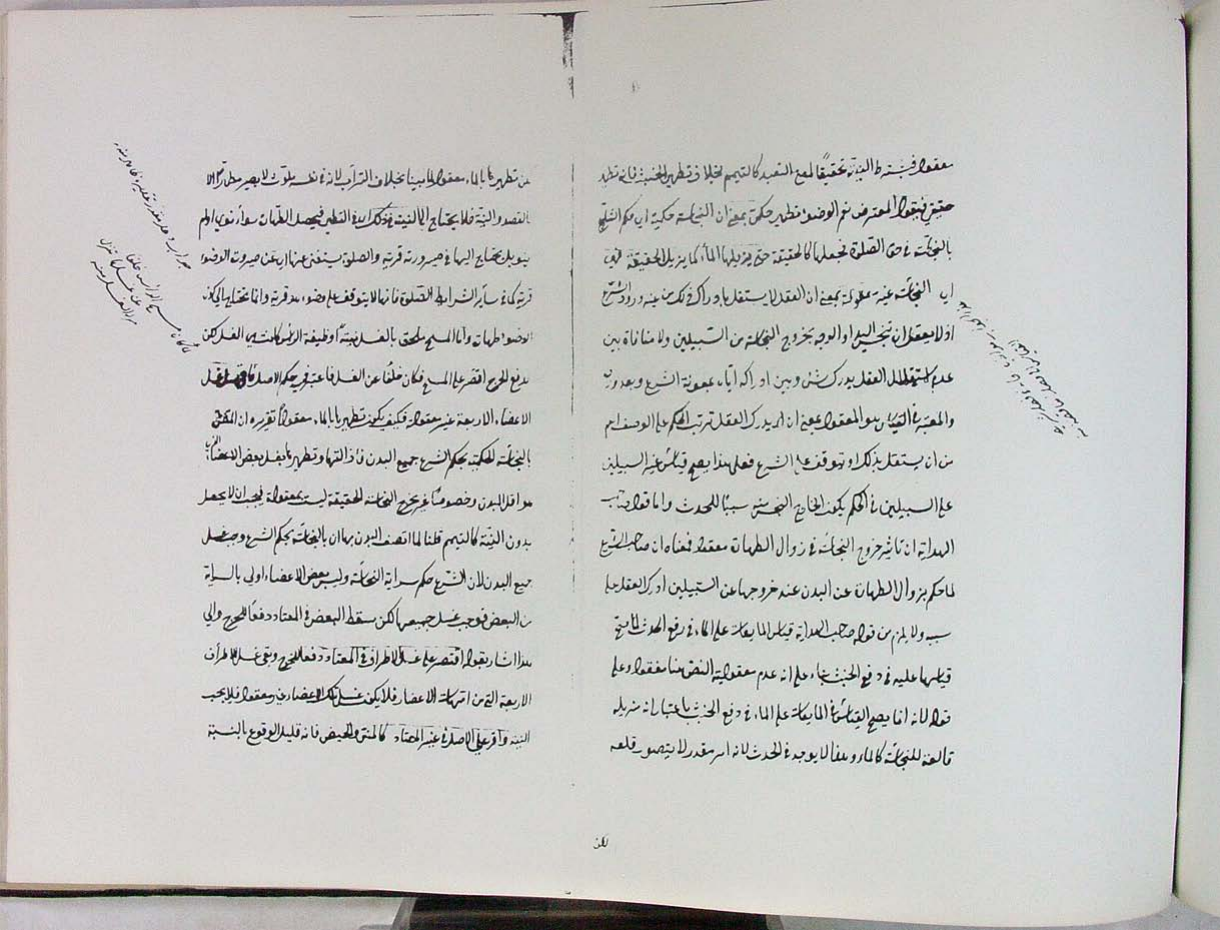 معقولا فيشترط النية تحقيقاً لمعنى التعبد كالتيمم بخلاف تطهير الخبث فانه تطهير
حقيقي فيقول المعترض نعم الوضوء تطهير حكمي بمعنى ان النجاسة حكمية اي حكم الشارع
بالنجاسة في حق الصلوة فجعلها كالحقيقة حتى يزيلها الماء كما يزيل الحقيقة فهي
اي النجاسة غير معقولة بمعنى ان العقل لا يستقل بادراك ذلك من غير ورود الشرع
اذ لا يعقل ان تنجس اليد او الوجه بخروج النجاسة من السبيلين ولا منافاة بين
عدم استقلال العقل بدرك شئ وبين ادراكه اياه بمعونة الشرع وبعد وروده
والمعتبر في القياس هو المعقول بمعنى ان يدرك العقل ترتب الحكم على الوصف اعم
من ان يستقل بذلك او يتوقف على الشرع فعلى هذا يصح قياس غير السبيلين
على السبيلين في الحكم بكون الخارج النجس منه سببا للحدث واما قول صاحب
الهداية ان تأثير خروج النجاسة في زوال الطهارة معقول فمعناه ان صاحب الشرع
لما حكم بزوال الطهارة عن البدن عند خروجها عن السبيلين ادرك العقل
سببه ولا يلزم من قول صاحب الهداية قياس المايعات على الماء في رفع الحدث كما صح
قياسها عليه في دفع الخبث بناء على انه عدم معقولية النص هنا مفقود وعلى
قوله لانه انما يصح القياس في المايعات على الماء في دفع الخبث باعتبار انه مزيلة
قالعة للنجاسة كالماء وهذا لا يوجد في الحدث لانه امر مقدر لا يتصور قلعه
لكن
تطهيرها بالماء معقول لما بينا بخلاف التراب لانه في نفسه ملوث لا يصير مطهرا الا
بالقصد والنية فلا يحتاج الماء الى النية في التطهير فيحصل الطهارة سواء نوى او لم
ينو بل يحتاج اليها في صيرورته قربة والصلوة يستغنى عنها اي عن صيرورة الوضوء
قربة كما في سائر الشرائط الصلوة فانها لا يتوقف على وضوء هو قربة وانما يحتاج الى كون
الوضوء طهارة واما المسح فملحق بالغسل وظيفة الرأس كانت هي الغسل لكن
لدفع الحرج اقتصر على المسح فكان خلفا عن الغسل فاعتبر فيه حكم الاصل فان قيل غسل
الاعضاء الاربعة غير معقول فكيف يكون تطهيرها بالماء معقولا تقريره ان المتصف
بالنجاسة الحكمية بحكم الشرع جميع البدن فازالتها وتطهيرها بغسل بعض الاعضاء
هو اقل البدن وخصوصا غير مخرج النجاسة الحقيقة ليست بمعقولة فيجب ان لا يحصل
بدون النية كالتيمم قلنا لما اتصف البدن بها اي بالنجاسة بحكم الشرع وجب غسل
جميع البدن لان الشرع حكم بسراية النجاسة وليس بعض الاعضاء اولى بالسراية
من البعض فوجب غسل جميعها لكن سقط البعض في المعتاد دفعا للحرج والى
هذا اشار بقوله اقتصر على غسل الاطراف في المعتاد دفعا للحرج وبقي غسل الاطراف
الاربعة التي من امهات الاعضاء فلا يكون غسل تلك الاعضاء غير معقول فلا يجب
النية واقر على الاصل في غير المعتاد كالمني والحيض فانه قليل الوقوع بالنسبة